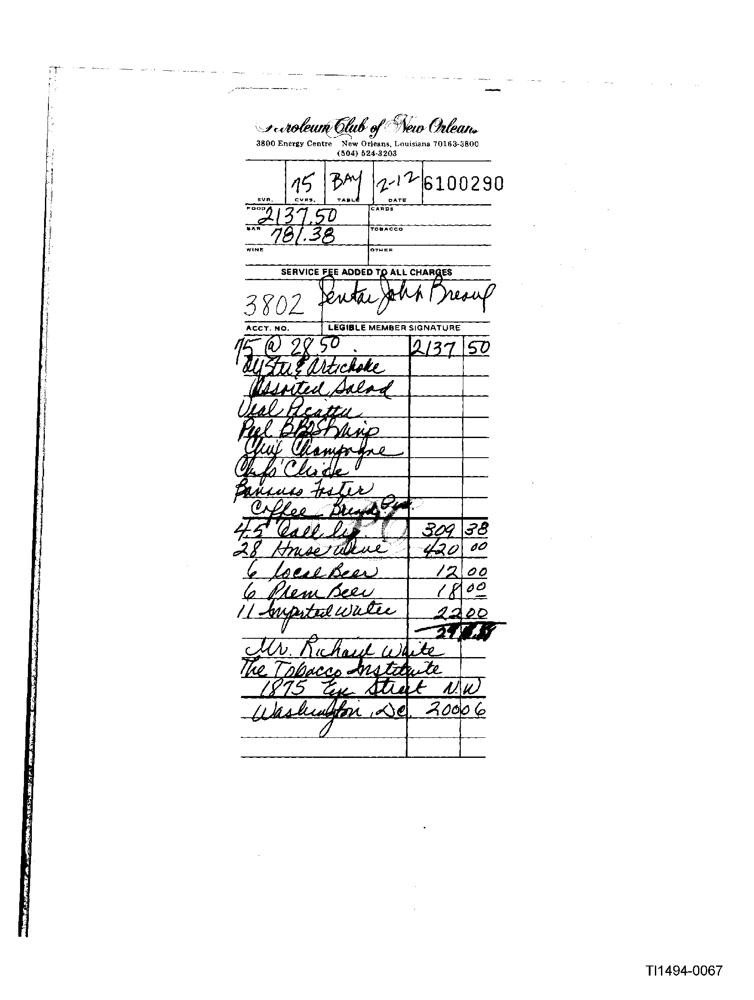 roleum Club of New Orleans
3800 Energy Centre New Orleans, Louisiana 70163-3800
(504) 524-3203
75 BAY 2-12 6100290
SVR. CVRS. TABLE DATE
FOOD 2137.50 CARDS
BAR 781.38 TOBACCO
WINE OTHER
SERVICE FEE ADDED TO ALL CHARGES
3802 Senator John Breaux
ACCT. NO. LEGIBLE MEMBER SIGNATURE
75 @ 28.50 2137 50
Oyster & Artichoke
Assorted Salad
Veal Picatta
Peel BBQ Shrimp
Champagne
Chefs Choice
Bananas Foster
Coffee
45 Call 309 38
28 House Wine 420 00
6 Local Beer 12 00
6 Prem Beer 18 00
11 Imported Water 22 00
Mr. Richard White
The Tobacco Institute
1875 Eye Street NW
Washington, DC 20006
TI1494-0067